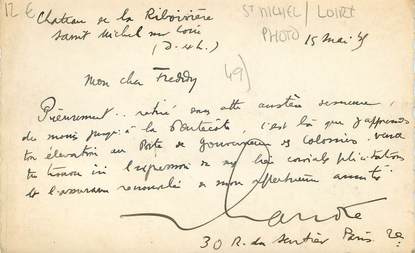 12 €
Chateau de la Riboisière
Saint Michel sur Loire
(I. & L.)
ST MICHEL / LOIRE
PHOTO
15 mai
49)
Mon cher Freddy
Pieusement.. retiré dans cette austère demeure,
de moine jusqu'à la Pentecôte, c'est là que j'apprends
ton élévation au Poste de Gouverneur des Colonies,
ici l'expression de mes bien cordiales félicitations
et l'assurance renouvelée de mon affectueuse amitié
30 R. du Sentier Paris 2e